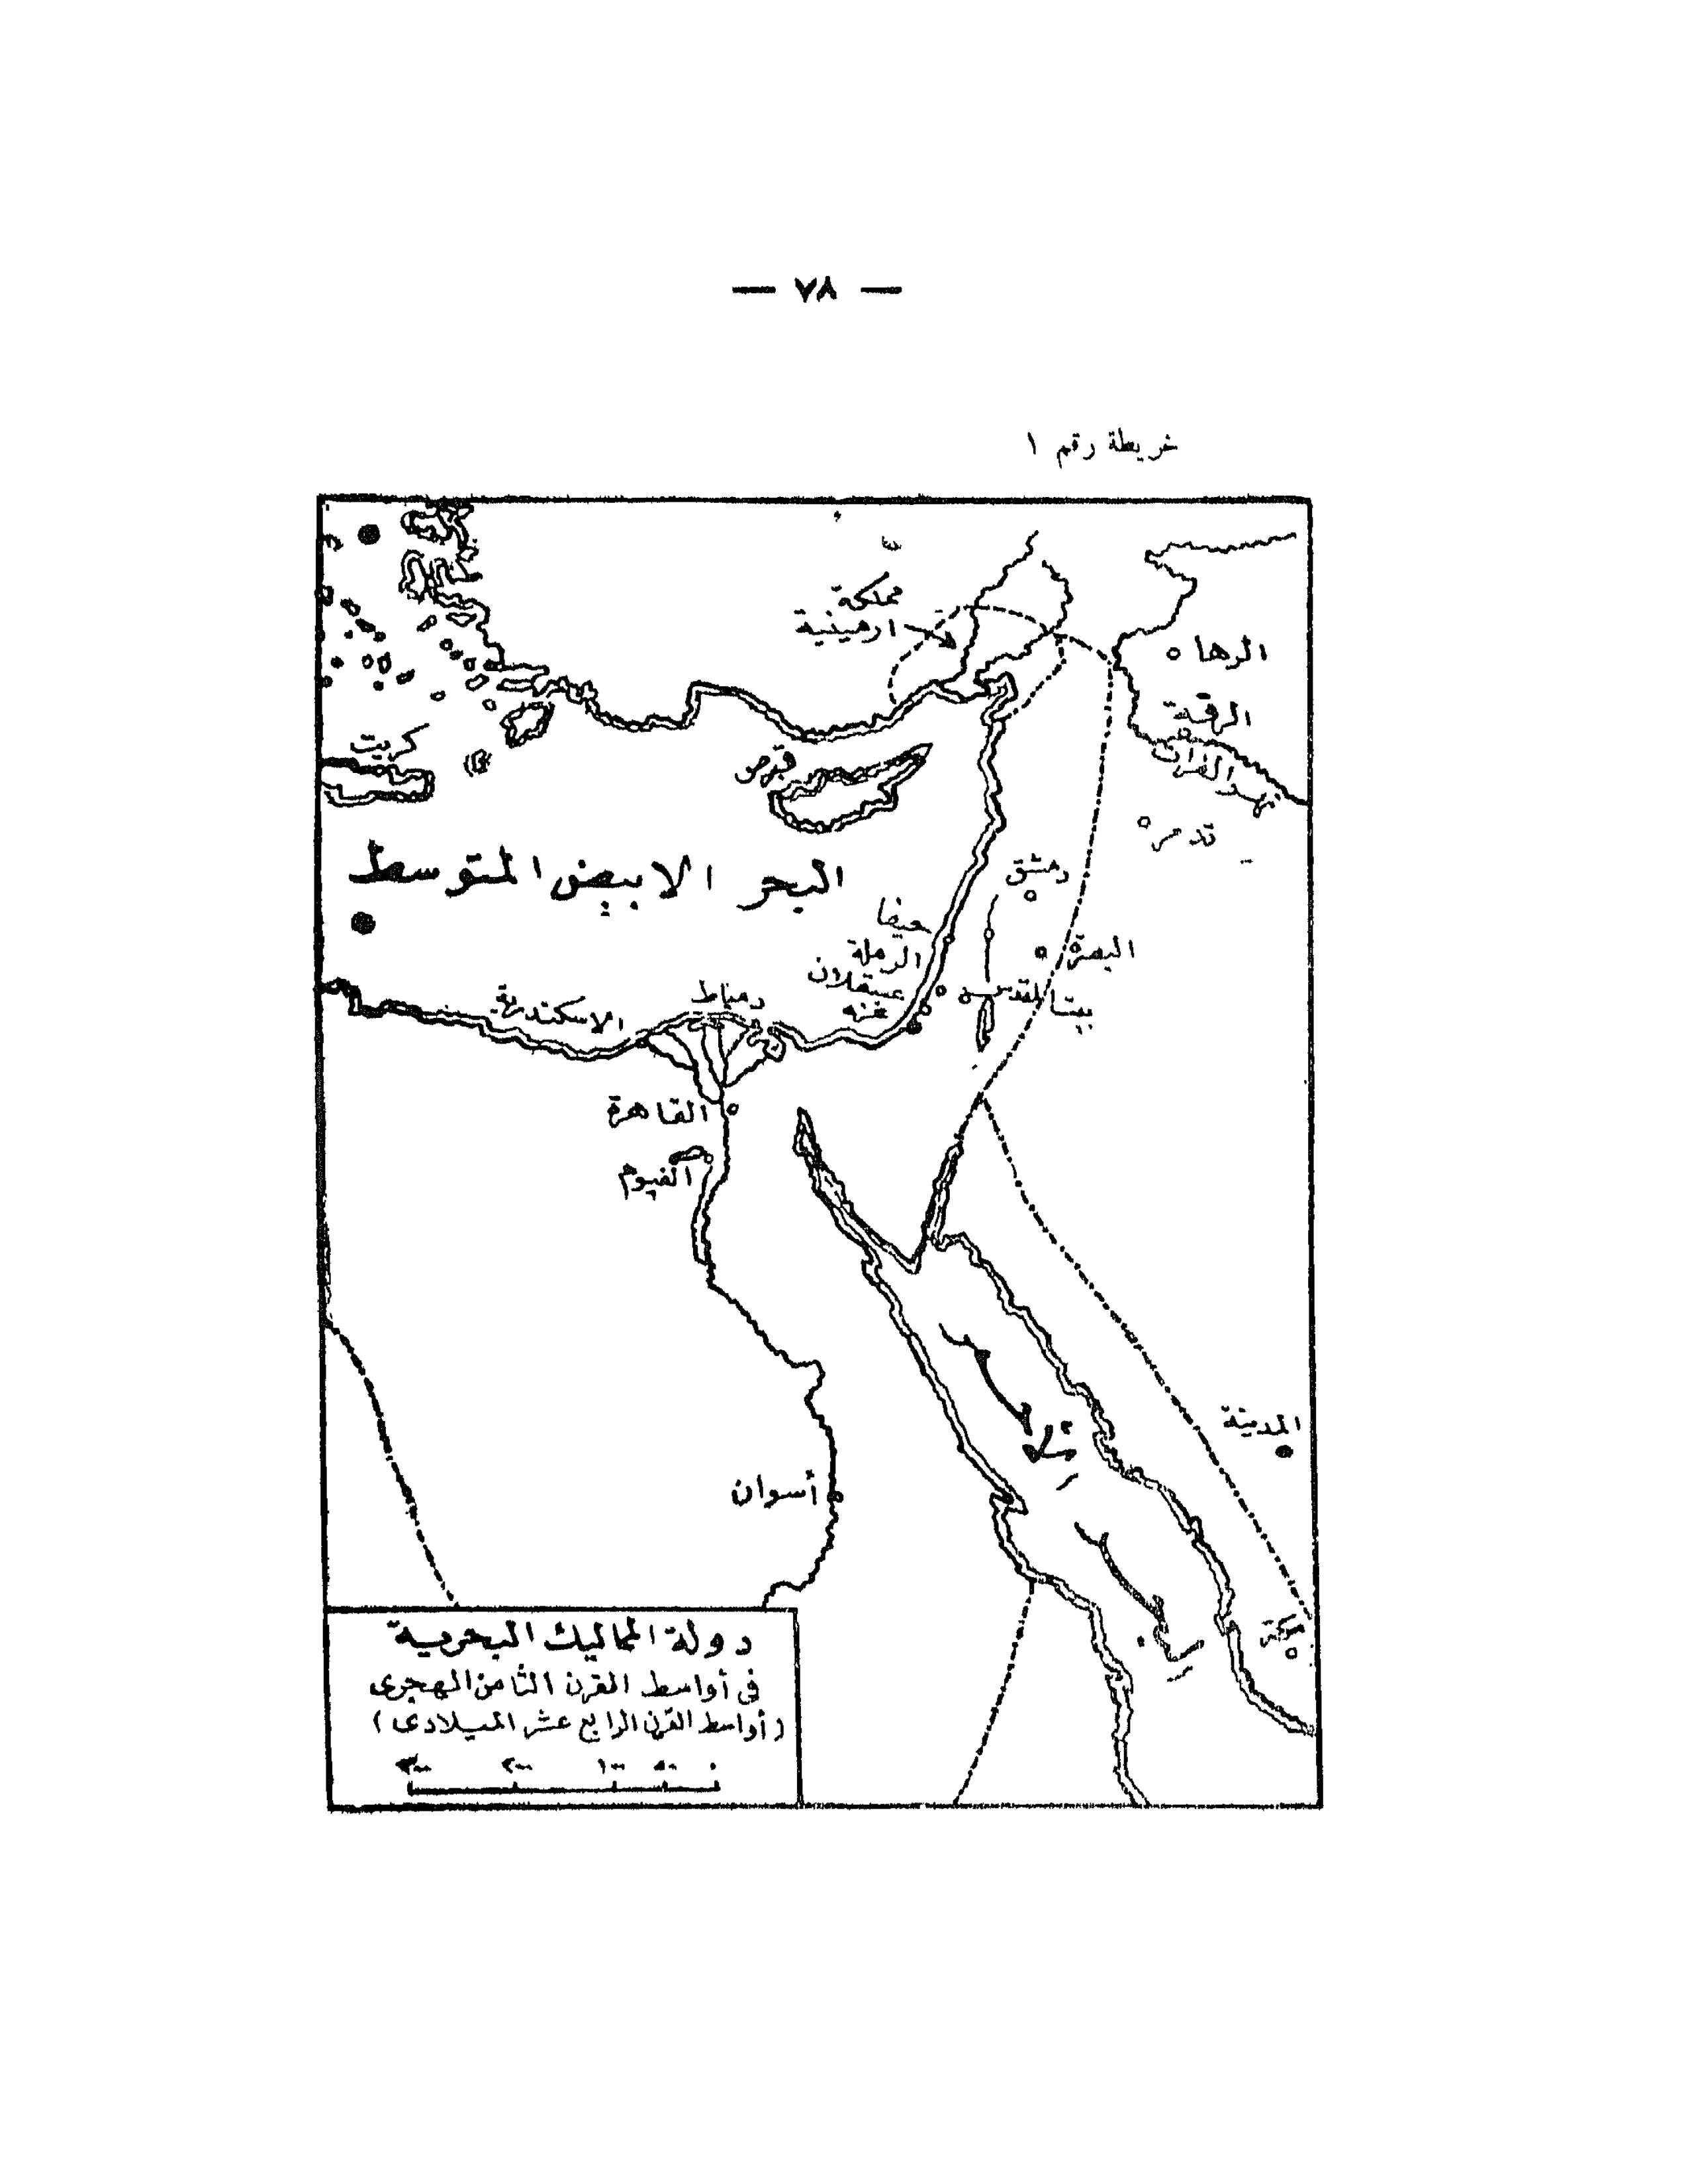 — ٧٨ —
خريطة رقم ١
مملكة
ارمينية
الرها
الرقة
نهر الفرات
كريت
قبرص
تدمر
البحر الابيض المتوسط
دمشق
حيفا
البصرة
الرملة
عسقلان
بيت المقدس
غزه
دمياط
الاسكندرية
القاهرة
الفيوم
المدينة
أسوان
مكة
دولة المماليك البحرية
فى أواسط القرن الثامن الهجرى
(أواسط القرن الرابع عشر الميلادى)
٠ ٥٠ ١٠٠ ٢٠٠ ٣٠٠